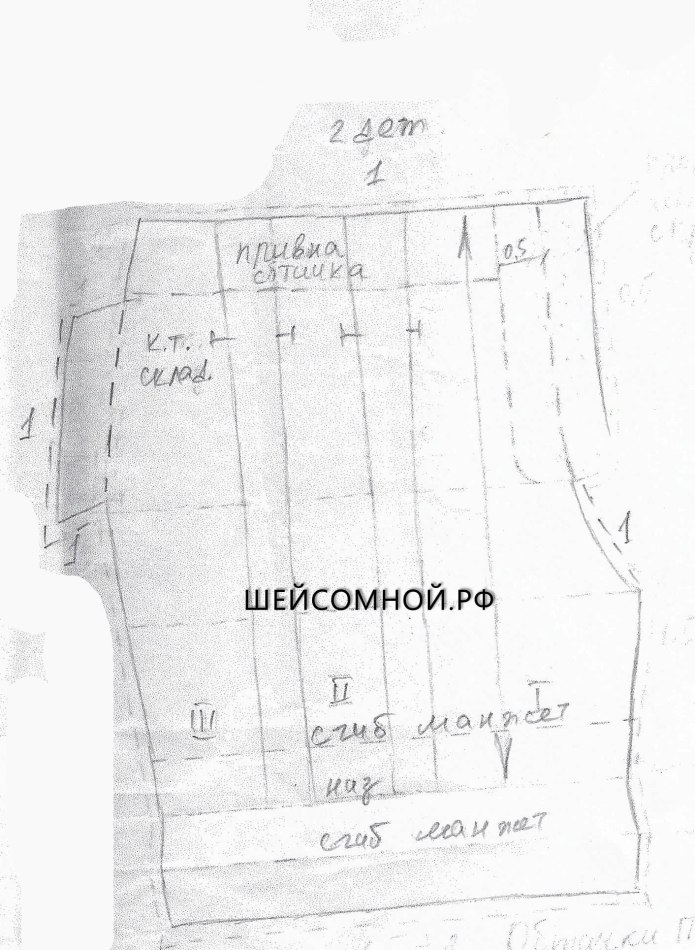 2 дет.
1
0,5
к.т.
склад.
1
1
1
ШЕЙСОМНОЙ.РФ
I
II
III
сгиб манжет
наз
сгиб манжет
Обтачки П